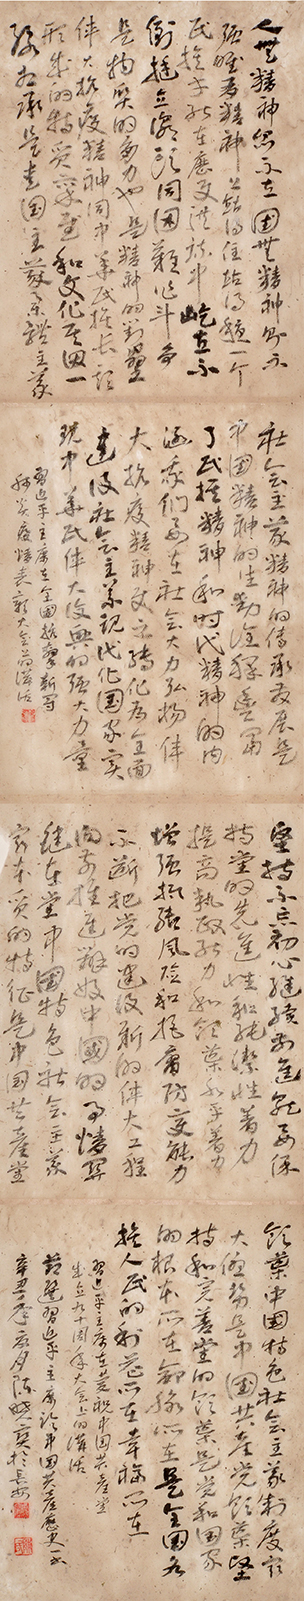 人无精神则不立国无精神则不
强唯有精神上站得住站得稳一个
民族才能在历史洪流中屹立不
倒挺立潮头同困难作斗争
是物质的角力也是精神的对垒
伟大抗疫精神同中华民族长期
形成的特质禀赋和文化基因一
脉相承是爱国主义集体主义
社会主义精神的传承和发展是
中国精神的生动诠释丰富
了民族精神和时代精神的内
涵我们要在全社会大力弘扬伟
大抗疫精神使之转化为全面
建设社会主义现代化国家实
现中华民族伟大复兴的强大力量
习近平主席在全国抗击新冠
肺炎疫情表彰大会上的讲话
坚持不忘初心继续前进就要保
持党的先进性和纯洁性着力
提高执政能力和领导水平着力
增强抵御风险和拒腐防变能力
不断把党的建设新的伟大工程
向前推进办好中国的事情关
键在党中国特色社会主义
最本质的特征是中国共产党
领导中国特色社会主义制度最
大优势是中国共产党领导坚
持和完善党的领导是党和国家
的根本所在命脉所在是全国各
族人民的利益所在幸福所在
习近平主席在庆祝中国共产党
成立九十五周年大会上的讲话